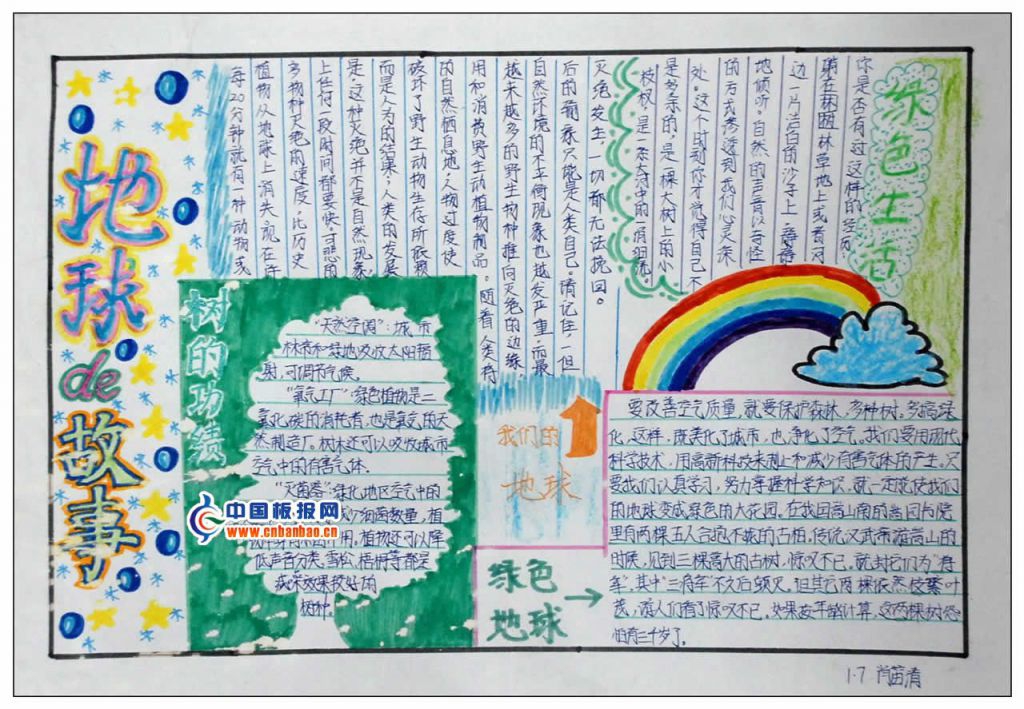 地球
de
故事
每20分钟就有一种动物或
植物从地球上消失。现在许
多物种灭绝的速度，比历史
上任何一段时间都要快。可悲的
是，这种灭绝并不是自然现象，
而是人为的结果，人类的发展
破坏了野生动物生存所依赖
的自然栖息地，人为过度使
用和消费野生动植物制品。随着人类将
越来越多的野生物种推向灭绝的边缘
自然环境的不平衡现象也越发严重，而最
后的输家只能是人类自己。请记住，一但
灭绝发生，一切都无法挽回。
绿色生活
你是否有过这样的经历：
躺在林茵草地上或者河
边一片洁白的沙子上，静静
地倾听。自然的声音以奇怪
的方式渗透到我们心灵深
处。这个时刻你才觉得自己不
是多余的，是一棵大树上的小
枝杈，是条大河中的涓涓流。
树的功绩
“天然空调”：城市
林带和绿地吸收太阳辐
射，可调节气候。
“氧气工厂”绿色植物是二
氧化碳的消耗者，也是氧气的天
然制造厂。树林还可以吸收城市
空气中的有害气体。
“灭菌器”绿化地区空气中的
减少细菌数量，植
用。植物还可以降
低声音分贝，雪松、梧桐等都是
减噪效果较好的
树种。
中国板报网
www.cnbanbao.cn
我们的
地球
绿色
地球
要改善空气质量，就要保护森林，多种树，多搞绿
化，这样，既美化了城市，也净化了空气。我们要用现代
科学技术，用高新科技来制止和减少有害气体的产生。只
要我们认真学习，努力掌握科学知识，就一定能使我们
的地球变成绿色的大花园。在我国嵩山南的嵩阳书院
里有两棵五人合抱不拢的古柏，传说汉武帝游嵩山的
时候，见到三棵高大的古树，惊叹不已，就封它们为“将
军”，其中“三将军”不久后毁灭，但其它两棵依然枝繁叶
茂，游人们看了惊叹不已。如果按年龄计算，这两棵树恐
怕有三千岁了。
1.7 肖笛清